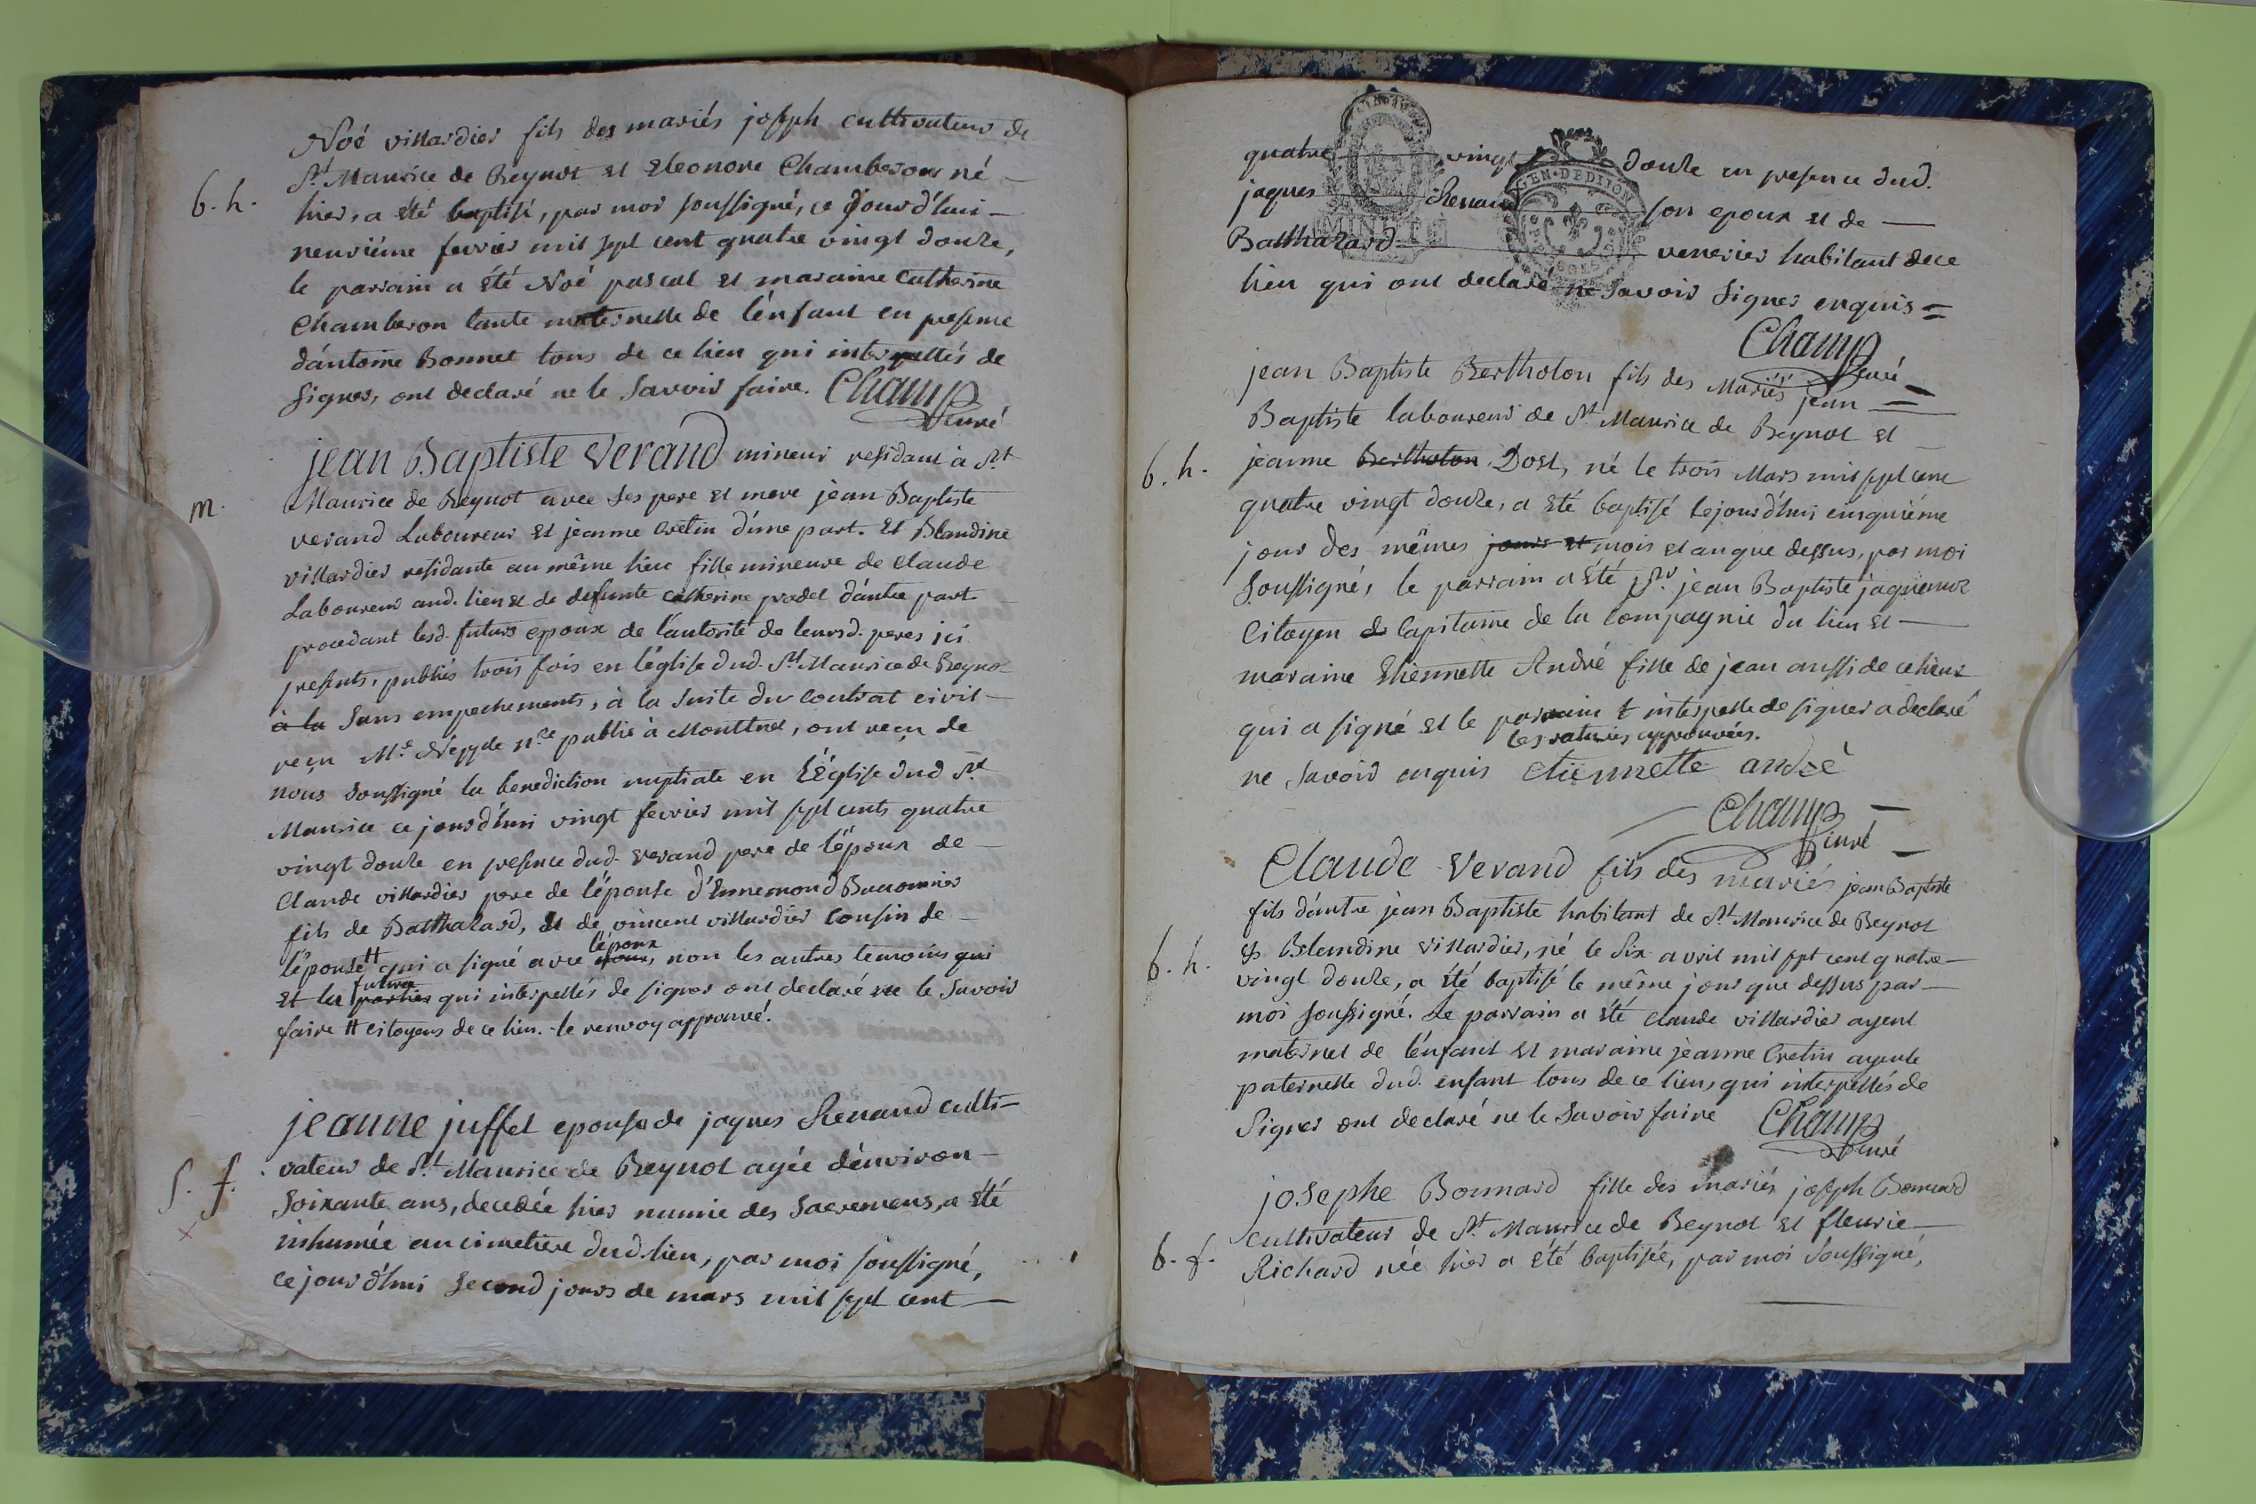 Noé villardier fils des mariés joseph cultivateur de
St Maurice de Beynot et Eleonore Chamberon né
b. h.
hier, a été baptisé, par moi soussigné, ce jourd'hui
neuvième fevrier mil sept cent quatre vingt douze,
le parrain a été Noé pascal et maraine Catherine
Chamberon tante maternelle de l'énfant en presence
d'antoine Bonnet tous de ce lieu qui interpellés de
signer, ont declaré ne le Savoir faire. Champ
curé
jean Baptiste Verand mineur residant à St
m.
Maurice de Beynot avec Ses pere et mere jean Baptiste
verand Laboureur et jeanne Cretin d'une part. Et Blandine
villardier residante au même lieu fille mineure de Claude
Laboureur aud. lieu et de defunte catherine pradel d'autre part
procedant lesd. futurs epoux de l'autorité de leursd. peres ici
presents, publiés trois fois en l'église dud. St Maurice de Beynot
à la Sans empechements, à la Suite du Contrat civil
reçu Me Neppde nre public à Monttuel, ont reçu de
nous Soussigné la benediction nuptiale en L'Église dud St
Maurice ce jourd'hui vingt fevrier mil sept cents quatre
vingt douze en presence dud. verand pere de l'époux de
Claude villardier pere de l'épouse d'Ennemond Buconnier
fils de Balthazard, et de vincent villardier Cousin de
l'époux
l'épouse # qui a signé avec nous, non les autres temoins qui
future
et les parties qui interpellés de signer ont declaré ne le Savoir
faire # citoyens de ce lieu. le renvoy approuvé.
jeanne juffet epouse de jaques Renaud culti-
S. f.
vateur de St Maurice de Beynot agée d'environ
Soixante ans, decedée hier munie des Sacremens, a été
inhumée au cimetiere dud. lieu, par moi soussigné,
ce jourd'hui Second jours de mars mil sept cent
quatre vingt douze en presence dud.
jaques Renaud son epoux et de
GEN. DE DIJON
MINUTE
Balthazard verrier habitant de ce
lieu qui ont declaré ne Savoir Signer enquis =
Champ
curé
jean Baptiste Bertholon fils des Mariés jean
Baptiste laboureur de St Maurice de Beynot et
b. h.
jeanne Bertholon Dost, né le trois Mars mil sept cent
quatre vingt douze, a été baptisé le jourd'hui cinquiéme
jour des mêmes jours et mois et an que dessus, par moi
Soussigné, le parrain a été Sr jean Baptiste jaquemez
Citoyen de Capitaine de la Compagnie du lieu et
maraine Etiennette André fille de jean aussi de ce lieu
qui a signé et le parrain t interpelle de signer a declaré
les ratures approuvées.
ne Savoir enquis etiennette andré
Champ
curé
Claude Verand fils des mariés jean Baptiste
fils d'autre jean Baptiste habitant de St Maurice de Beynot
b. h.
et Blandine Villardier, né le Six avril mil sept cent quatre
vingt douze, a été baptisé le même jour que dessus par
moi soussigné. Le parrain a été Claude villardier ayeul
maternel de l'énfant et maraine jeanne Cretin ayeule
paternelle dud. enfant tous de ce lieu, qui interpellés de
Signer ont declaré ne le Savoir faire Champ
curé
josephe Bonnard fille des mariés joseph Bonnard
cultivateur de St Maurice de Beynot et fleurie
b. f.
Richard née hier a été baptisée, par moi Soussigné,